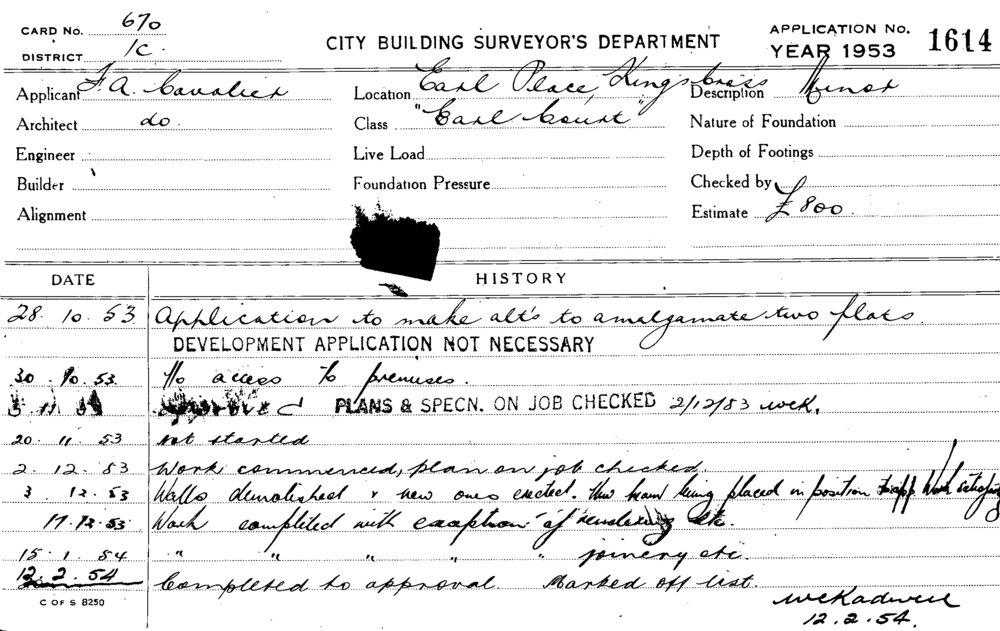 CARD No. 670
DISTRICT 1C.
CITY BUILDING SURVEYOR'S DEPARTMENT
APPLICATION No. 1614
YEAR 1953
Applicant F. A. Cavalier Location Earl Place, Kings Cross Description Minor
Architect do. Class "Earl Court" Nature of Foundation
Engineer Live Load Depth of Footings
Builder Foundation Pressure Checked by
Alignment Estimate £800.
DATE HISTORY
28. 10. 53 Application to make alt's to amalgamate two flats.
DEVELOPMENT APPLICATION NOT NECESSARY
30. 10. 53. No access to premises.
PLANS & SPECN. ON JOB CHECKED 2/12/53 WCK.
20. 11. 53 Not started
2. 12. 53 Work commenced, plan on job checked.
3. 12. 53 Walls demolished & new ones erected. New beam being placed in position Work satisfactory
53 Work completed with exception of rendering etc.
15. 1. 54 " " " " " joinery etc.
12. 2. 54 Completed to approval Marked off list.
C OF S 8250
12. 2. 54.